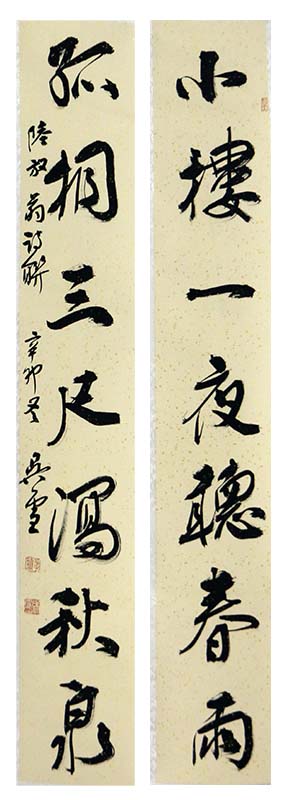 小樓一夜聽春雨
孤桐三尺瀉秋泉
陸放翁詩聯 辛卯冬 吳雪